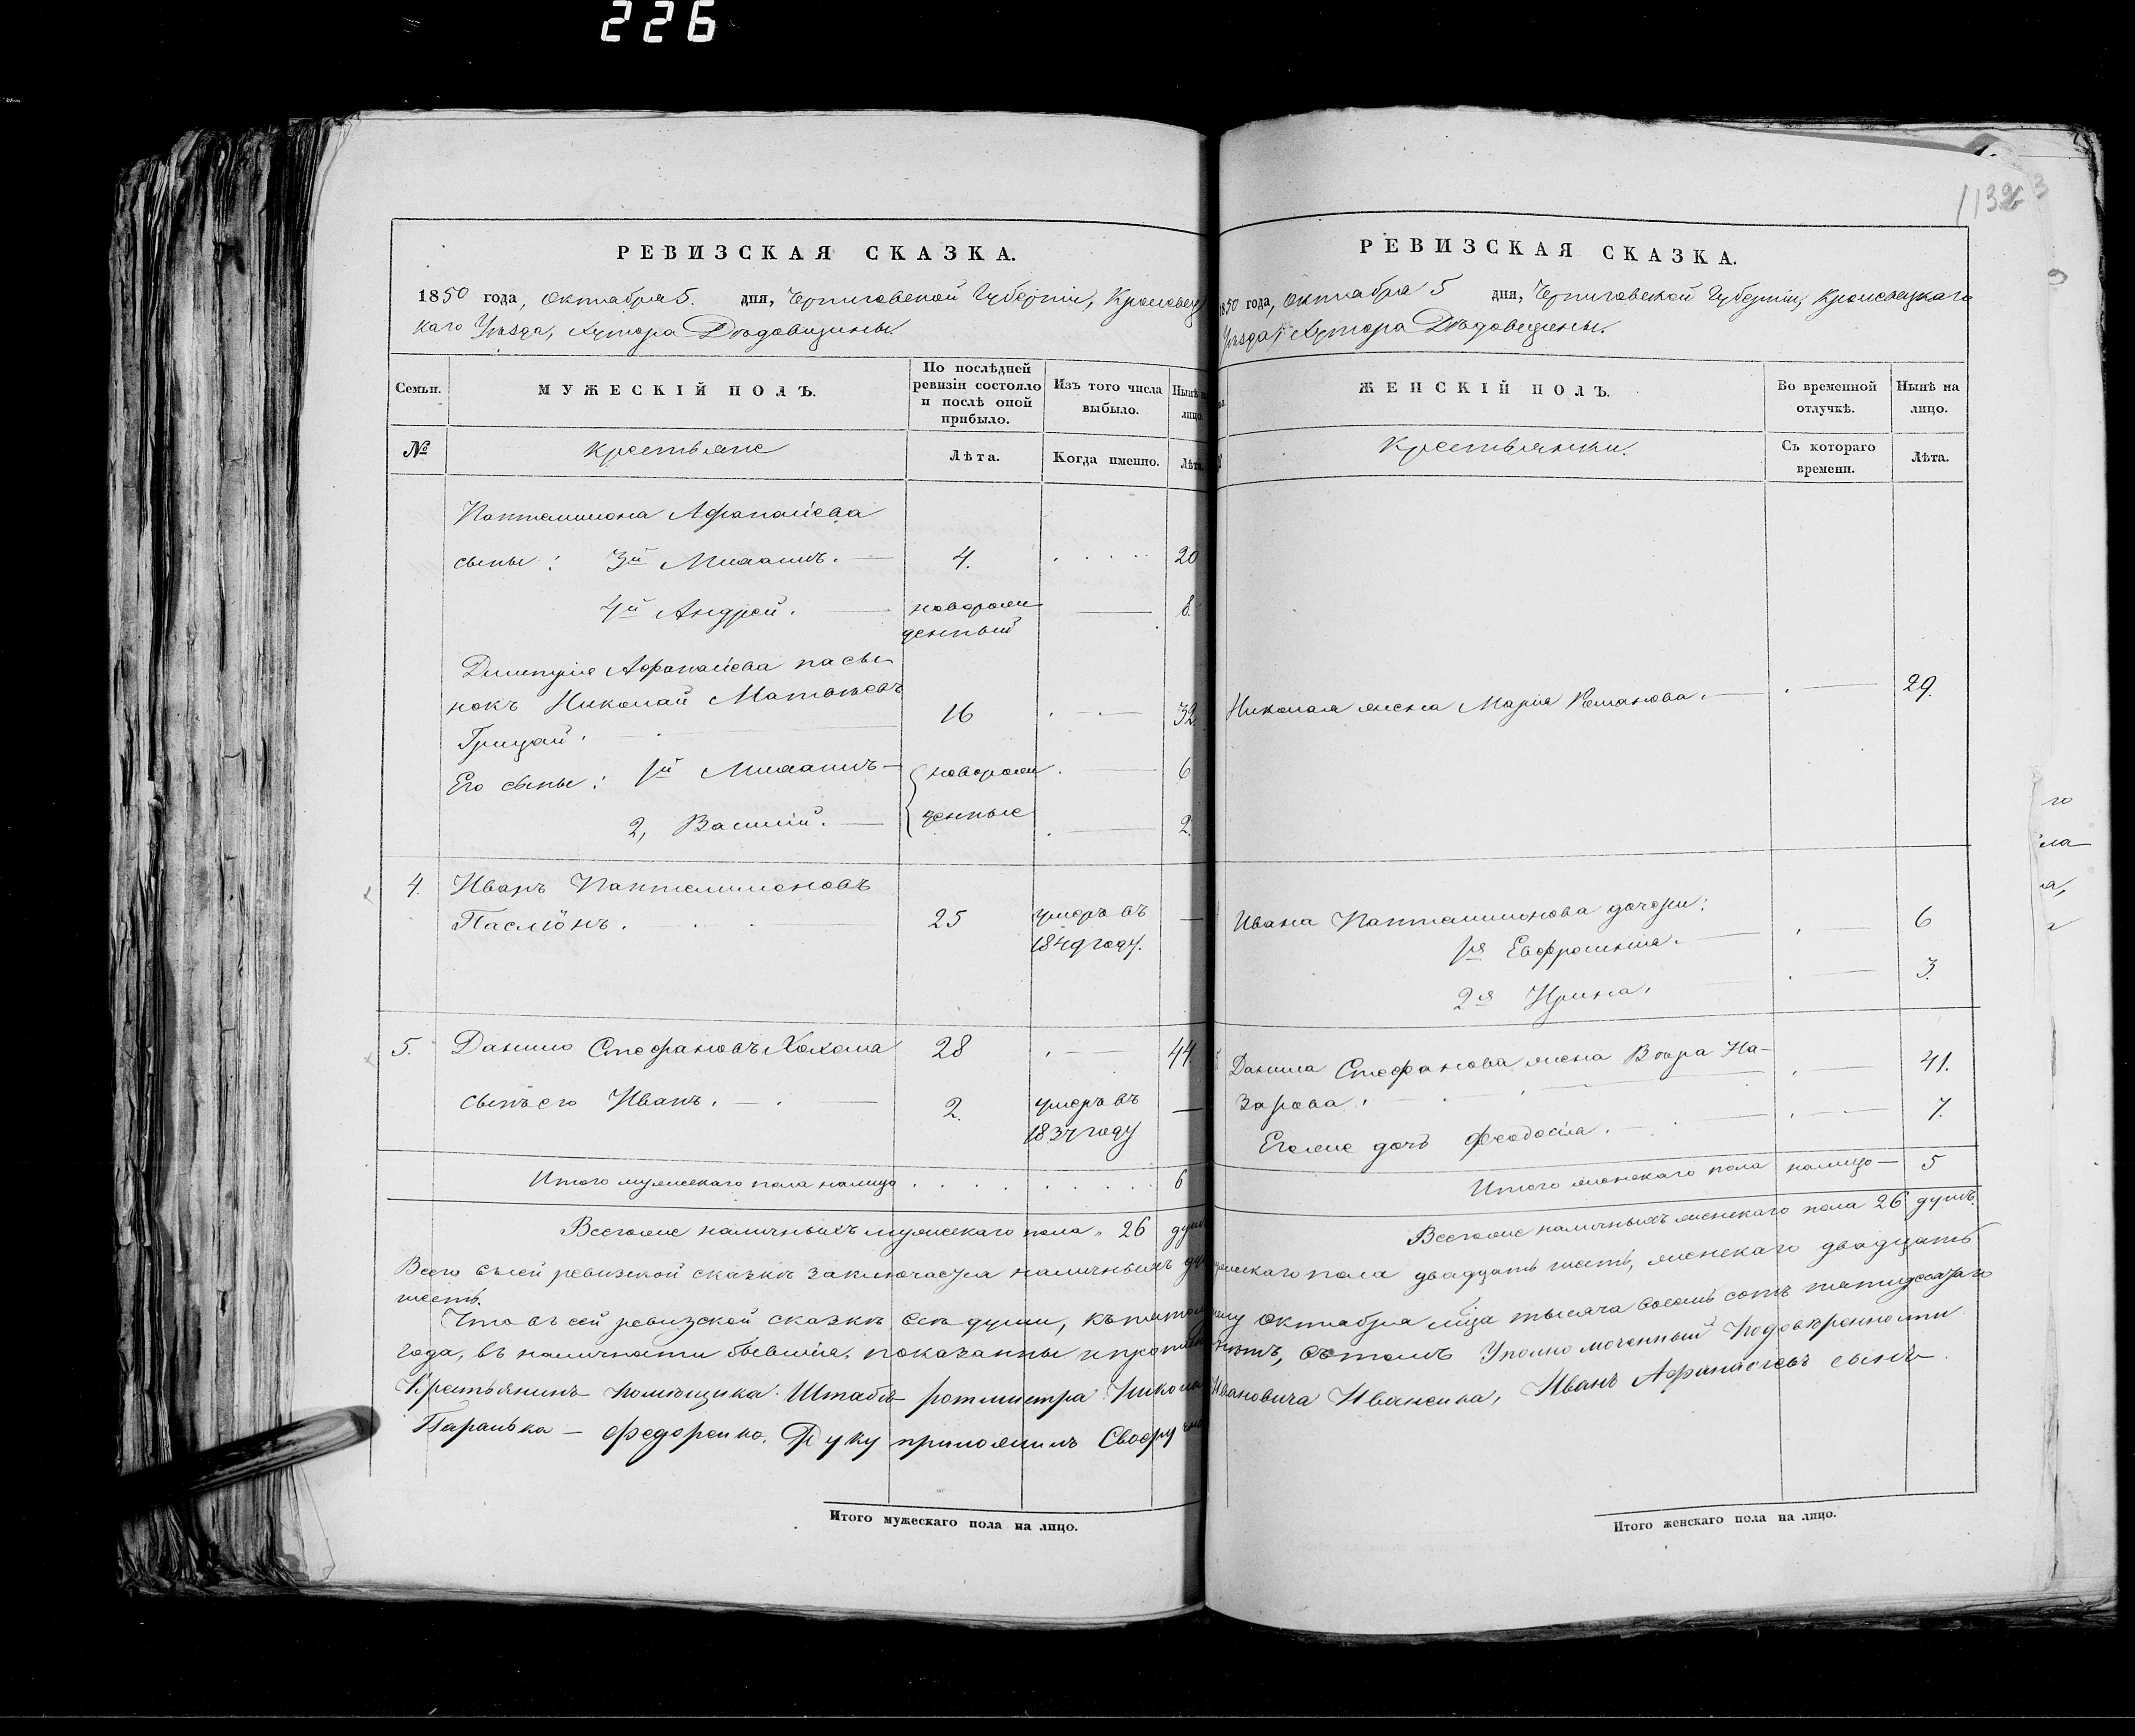 226
РЕВИЗСКАЯ СКАЗКА.
1850 года, Октября 5. дня, Черниговской Губерніи, Кролевец
каго Уѣзда, Хутора Дѣдовщины.
Семьи.
МУЖЕСКІЙ ПОЛЪ.
По послѣдней
ревизіи состояло
и послѣ оной
прибыло.
Изъ того числа
выбыло.
Нынѣ на
лицо.
№
Крестьяне
Лѣта.
Когда именно.
Лѣта.
Пантелимона Афанасіева
сыны: 3й Михаилъ. 4. 20
4й Андрей. новорож 8.
денный
Дмитрія Афанасіева пасы
нокъ Николай Матвѣевъ
Грицай. 16 32
Его сыны: 1й Михаилъ новорож 6
2, Василій. денные 2.
4. Иванъ Пантелимоновъ
Паслiонъ. 25 умеръ въ
1849 году.
5. Данило Стефановъ Хохома 28 44.
сынъ его Иванъ. 2. умеръ въ
1837 году
Итого мужескаго пола налицо 6
Всего же наличныхъ мужескаго пола 26 душъ
РЕВИЗСКАЯ СКАЗКА.
1850 года, Октября 5 дня, Черниговской Губерніи, Кролевецкаго
Уѣзда, Хутора Дѣдовщины.
ЖЕНСКІЙ ПОЛЪ.
Во временной
отлучкѣ.
Нынѣ на
лицо.
Крестьянки.
Съ котораго
времени.
Лѣта.
Николая жена Марія Романова. 29.
Ивана Пантелимонова дочери:
1я Евфросинія. 6
2я Ирина. 3.
Данила Стефанова жена Вѣра На-
зарова. 41.
Его же дочь Феодосія. 7.
Итого женскаго пола налицо 5
Всего же наличныхъ женскаго пола 26 душъ.
Всего въ сей ревизской сказкѣ заключается наличныхъ душъ мужескаго пола двадцать шесть, женскаго двадцать
шесть.
Что въ сей ревизской сказкѣ всѣ души, къ пятому Октября мѣсяца тысяча восемь сотъ пятидесятаго
года, въ наличности бывшія, показаны и прописныхъ нѣтъ, въ томъ Уполномоченный по довѣренности
Крестьянинъ помѣщика Штабъ ротмистра Николая Ивановича Иваненка, Иванъ Афанасіевъ сынъ
Федоренко, Руку приложилъ
Итого мужескаго пола на лицо.
Итого женскаго пола на лицо.